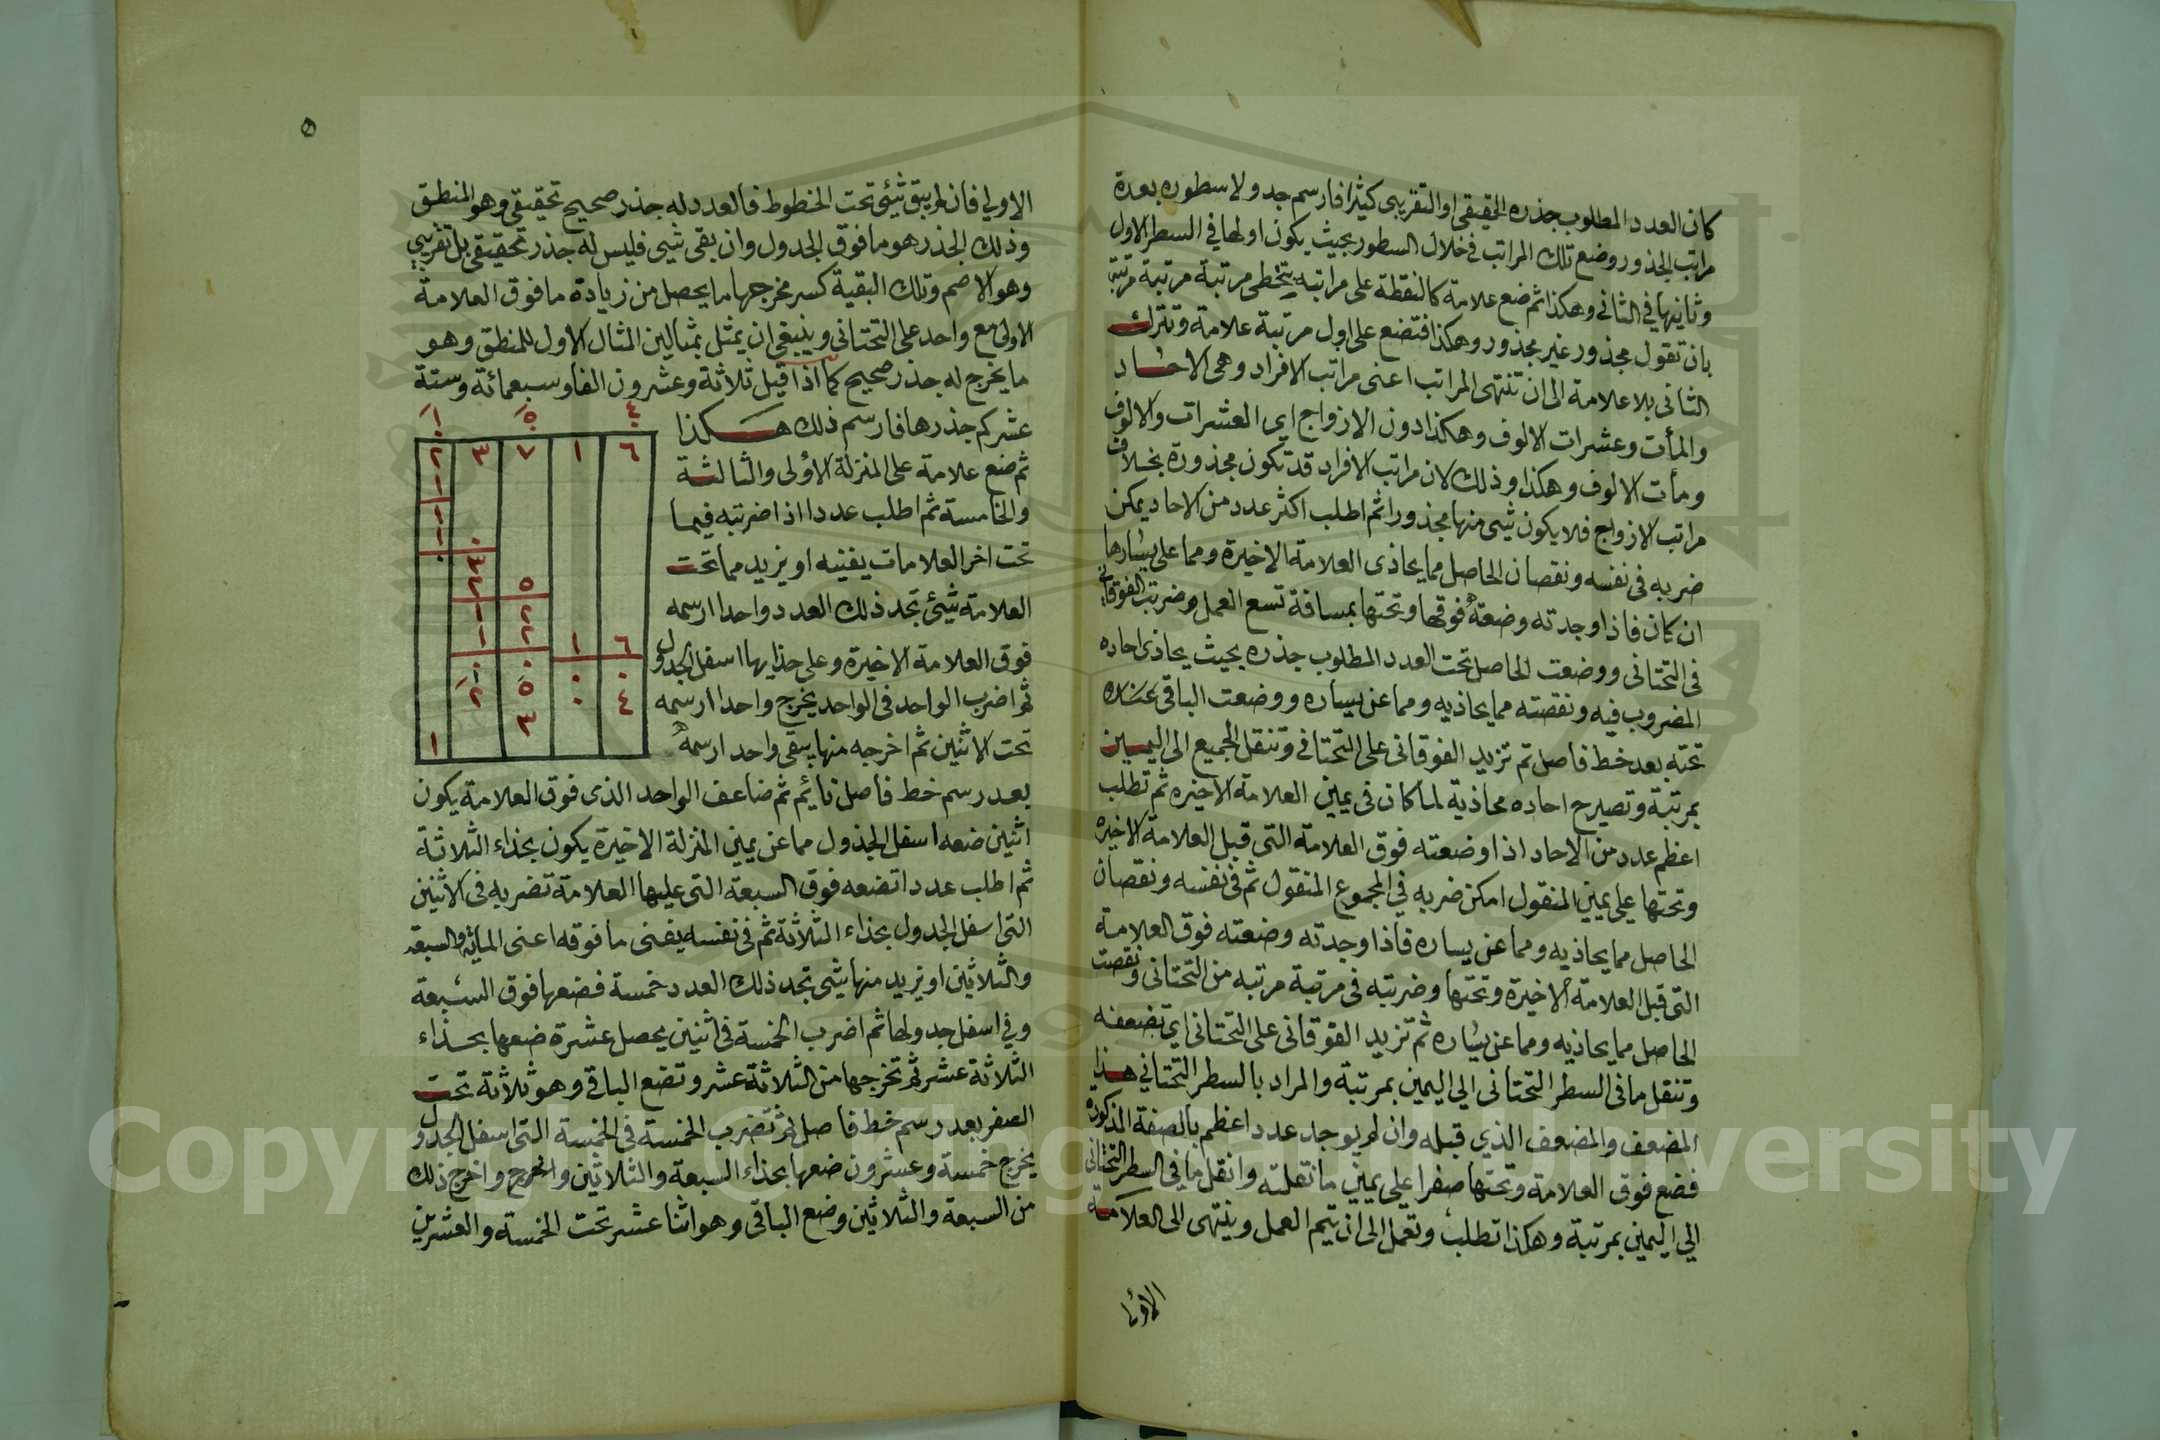 كان العدد المطلوب جذره الحقيقى او التقريبى كثيرا فارسم جدولا سطوره بعدة
مراتب الجذور وضع تلك المراتب فى خلال السطور بحيث يكون اولها فى السطر الاول
وثانيها فى الثانى وهكذا ثم ضع علامة كالنقطة على مراتبه بتخطى مرتبة مرتبة مرتبة
بان تقول مجذور غير مجذور وهكذا فتضع على اول مرتبة علامة وتترك
الثانى بلا علامة الى ان تنتهى المراتب اعنى مراتب الافراد وهى الاحاد
والمأت وعشرات الالوف وهكذا دون الازواج اى العشرات والالوف
ومأت الالوف وهكذا وذلك لان مراتب الافراد قد تكون مجذورة بخلاف
مراتب الازواج فلا يكون شى منها مجذورا ثم اطلب اكثر عدد من الاحاد يمكن
ضربه فى نفسه ونقصان الحاصل مما يحاذى العلامة الاخيرة ومما على يسارها
ان كان فاذا وجدته وضعته فوقها وتحتها بمسافة تسع العمل وضربت الفوقانى
فى التحتانى ووضعت الحاصل تحت العدد المطلوب جذره بحيث يحاذى احاده
المضروب فيه ونقصته مما يحاذيه ومما عن يساره ووضعت الباقى
تحته بعد خط فاصل ثم تزيد الفوقانى على التحتانى وتنقل الجميع الى اليمين
بمرتبة وتصير احاده محاذية لما كان فى يمين العلامة الاخيره ثم تطلب
اعظم عدد من الاحاد اذا وضعته فوق العلامة التى قبل العلامة الاخيره
وتحتها على يمين المنقول امكن ضربه فى المجموع المنقول ثم فى نفسه ونقصان
الحاصل مما يحاذيه ومما عن يساره فاذا وجدته وضعته فوق العلامة
التى قبل العلامة الاخيرة وتحتها وضربته فى مرتبة مرتبه من التحتانى ونقصت
الحاصل مما يحاذيه ومما عن يساره ثم تزيد الفوقانى على التحتانى اى تضعفه
وتنقل ما فى السطر التحتانى الى اليمين بمرتبة والمراد بالسطر التحتانى هذا
المضعف والمضعف الذي قبله وان لم يوجد عدد اعظم بالصفة المذكورة
فضع فوق العلامة وتحتها صفرا على يمين ما نقلته وانقل ما فى السطر التحتانى
الى اليمين بمرتبة وهكذا تطلب وتعمل الى ان يتم العمل وينتهى الى العلامة
الاولى
٥
الاولى فان لم يبق شئ تحت الخطوط فالعدد له جذر صحيح تحقيقى وهو المنطق
وذلك الجذر هو ما فوق الجدول وان بقى شى فليس له جذر تحقيقى بل تقريبى
وهو الاصم وتلك البقية كسر مخرجها ما يحصل من زيادة ما فوق العلامة
الاولى مع واحد على التحتانى وينبغى ان يمثل بمثالين المثال الاول للمنطق وهو
ما يخرج له جذر صحيح كما اذا قيل ثلاثة وعشرون الفا وسبعمائة وستة
عشر كم جذرها فارسم ذلك هكذا
ثم ضع علامة على المنزلة الاولى والثالثة
والخامسة ثم اطلب عددا اذا ضربته فيما
تحت اخر العلامات يفنيه او يزيد مما تحت
العلامة شئ تجد ذلك العدد واحدا ارسمه
فوق العلامة الاخيرة وعلى حذايها اسفل الجدول
ثم اضرب الواحد فى الواحد يخرج واحدا ارسمه
تحت الاثنين ثم اخرجه منها يبقى واحد ارسمه
١ ٥ ٤
٢ ٣ ٧ ١ ٦
بعد رسم خط فاصل نائم ثم ضاعف الواحد الذى فوق العلامة يكون
اثنين ضعه اسفل الجدول مما عن يمين المنزلة الاخيرة يكون بحذاء الثلاثة
ثم اطلب عددا تضعه فوق السبعة التى عليها العلامة تضربه فى الاثنين
التى اسفل الجدول بحذاء الثلاثة ثم فى نفسه يفنى ما فوقه اعنى المائة والسبعة
والثلاثين او يزيد منها شى تجد ذلك العدد خمسة فضعها فوق السبعة
وفى اسفل جدولها ثم اضرب الخمسة فى اثنين يحصل عشرة ضعها بحذاء
الثلاثة عشر ثم تخرجها من الثلاثة عشر وتضع الباقى وهو ثلاثة تحت
الصفر بعد رسم خط فاصل ثم تضرب الخمسة فى الخمسة التى اسفل الجدول
يخرج خمسة وعشرون ضعها بحذاء السبعة والثلاثين واخرج ذلك
من السبعة والثلاثين وضع الباقى وهو اثنا عشر تحت الخمسة والعشرين
Copyright © King Saud University